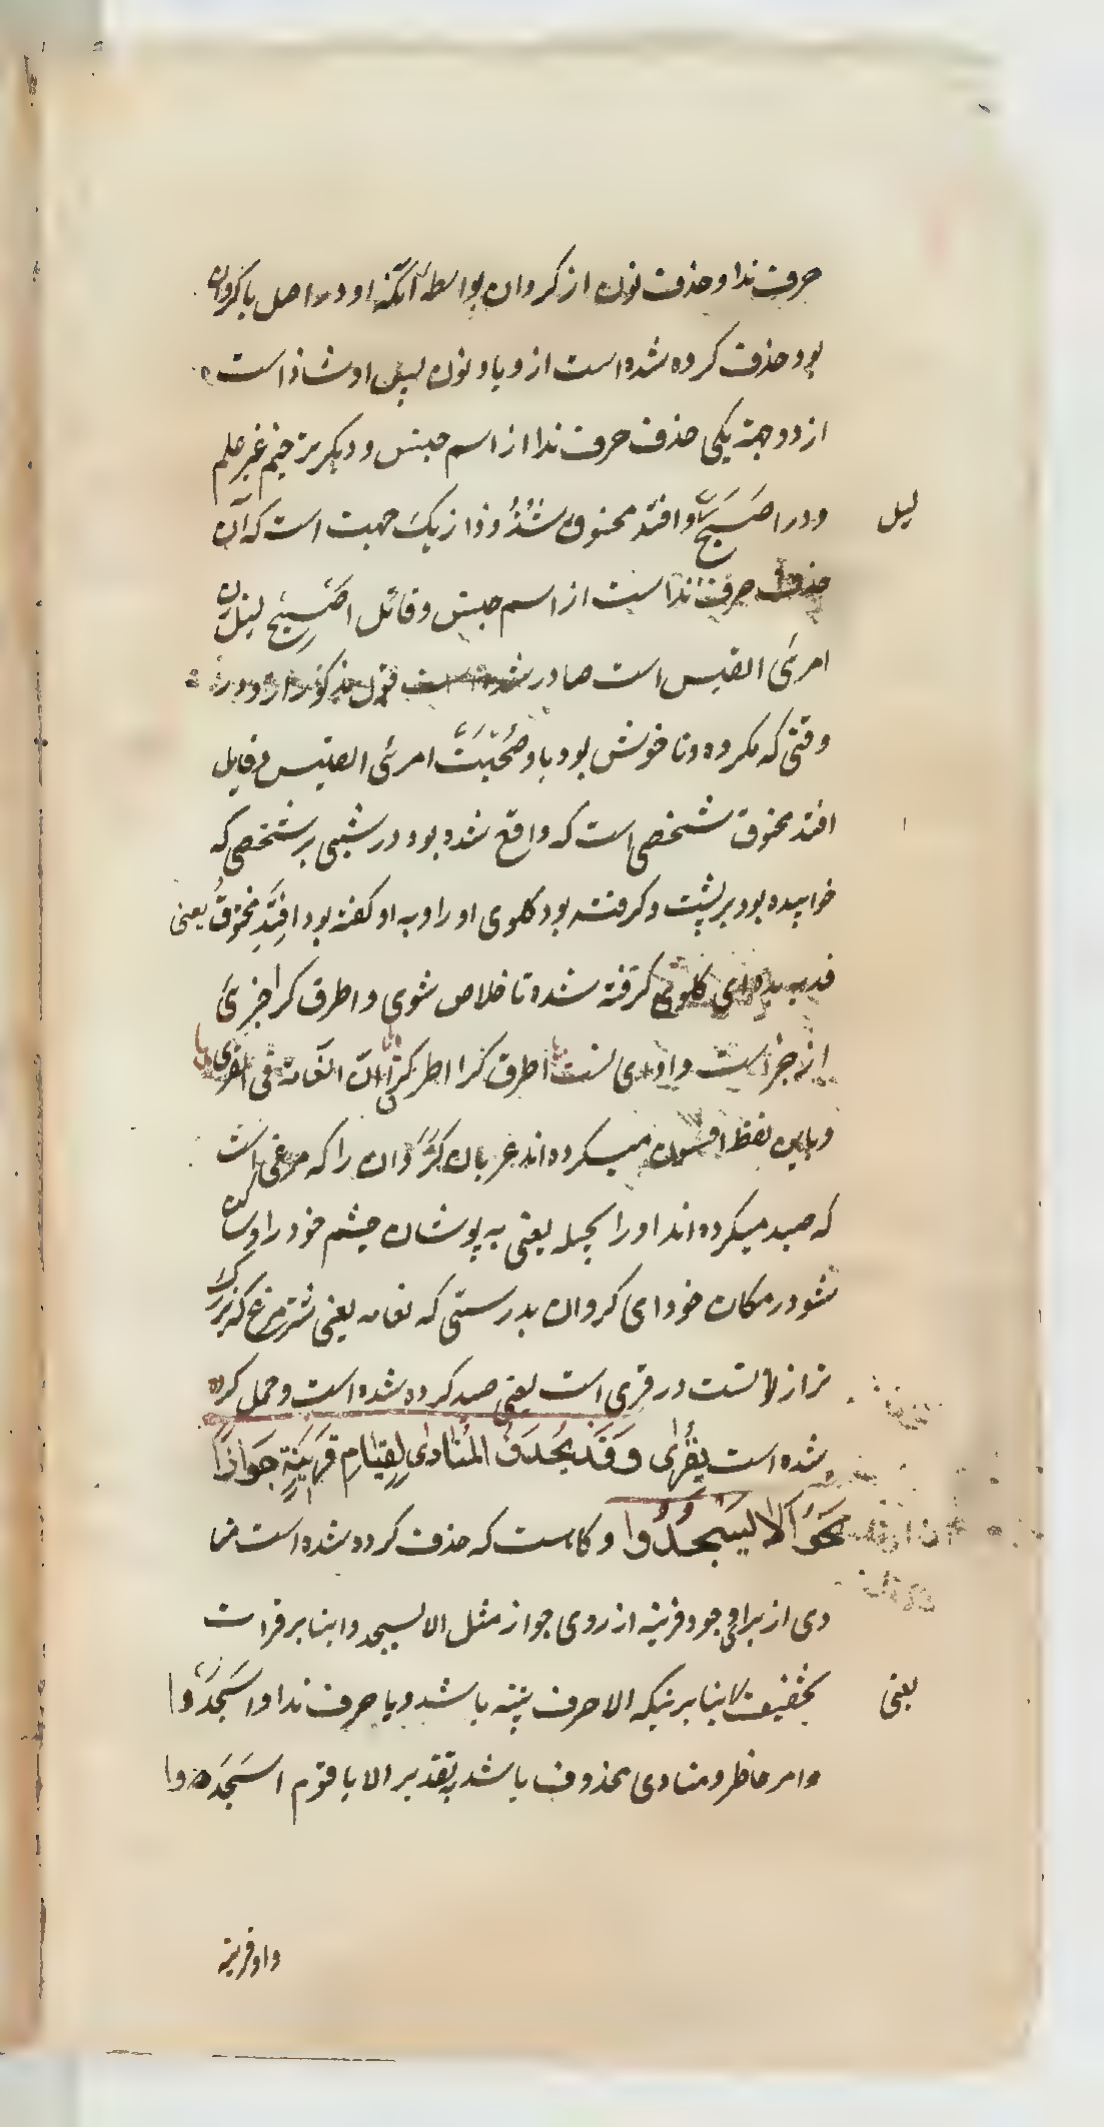 حرف ندا و حذف نون از کروان بواسطه آنکه او در اصل یا کروان
بود حذف کرده شده است ازو یا و نون پس او شاذ است
از دو جهة یکی حذف حرف ندا از اسم جنس و دیکر ترخیم غیر علم
و در اصبح و افتد مخنوق شذوذ از یک جهت است که آن
لیل
حذف حرف ندا است از اسم جنس و قائل اصبح لیل زن
امرئ القیس است صادر شده است قول مذکور ازو در
وقتی که مکروه و نا خوش بود با و صحبت امرئ القیس و قایل
افتد مخنوق شخصی است که واقع شده بود در شبی بر شخصی که
خوابیده بود بر پشت و کرفته بود کلوی او را و به او کفته بود افتد مخنوق یعنی
فدیه بده ای کلوی کرفته شده تا خلاص شوی و اطرق کرا جزئ
از جزا است و اطرق کرا اطرق کرا ان النعامة فی القری
و باین لفظ افسون میکرده اند عربان کروان را که مرغی است
که صید میکرده اند او را بحیله یعنی به پوشان چشم خود را و ساکن
شو در مکان خود ای کروان بدرستی که نعامه یعنی شتر مرغ که بزرک
تر از تست در قری است یعنی صید کرده شده است و حمل کرده
شده است بقری و وقد یحذف المنادی لقیام قرینة جوازا
نحو الا یسجدوا و کاهست که حذف کرده شده است منا
دی از برای وجود قرینه از روی جواز مثل الا یسجدوا بنا بر قرات
تخفیف الا بنا بر نیکه الا حرف تنبیه باشد و یا حرف ندا و اسجدوا
یعنی
و امر حاضر و منادی محذوف باشد بتقدیر الا یا قوم اسجدوا
و او قرینه